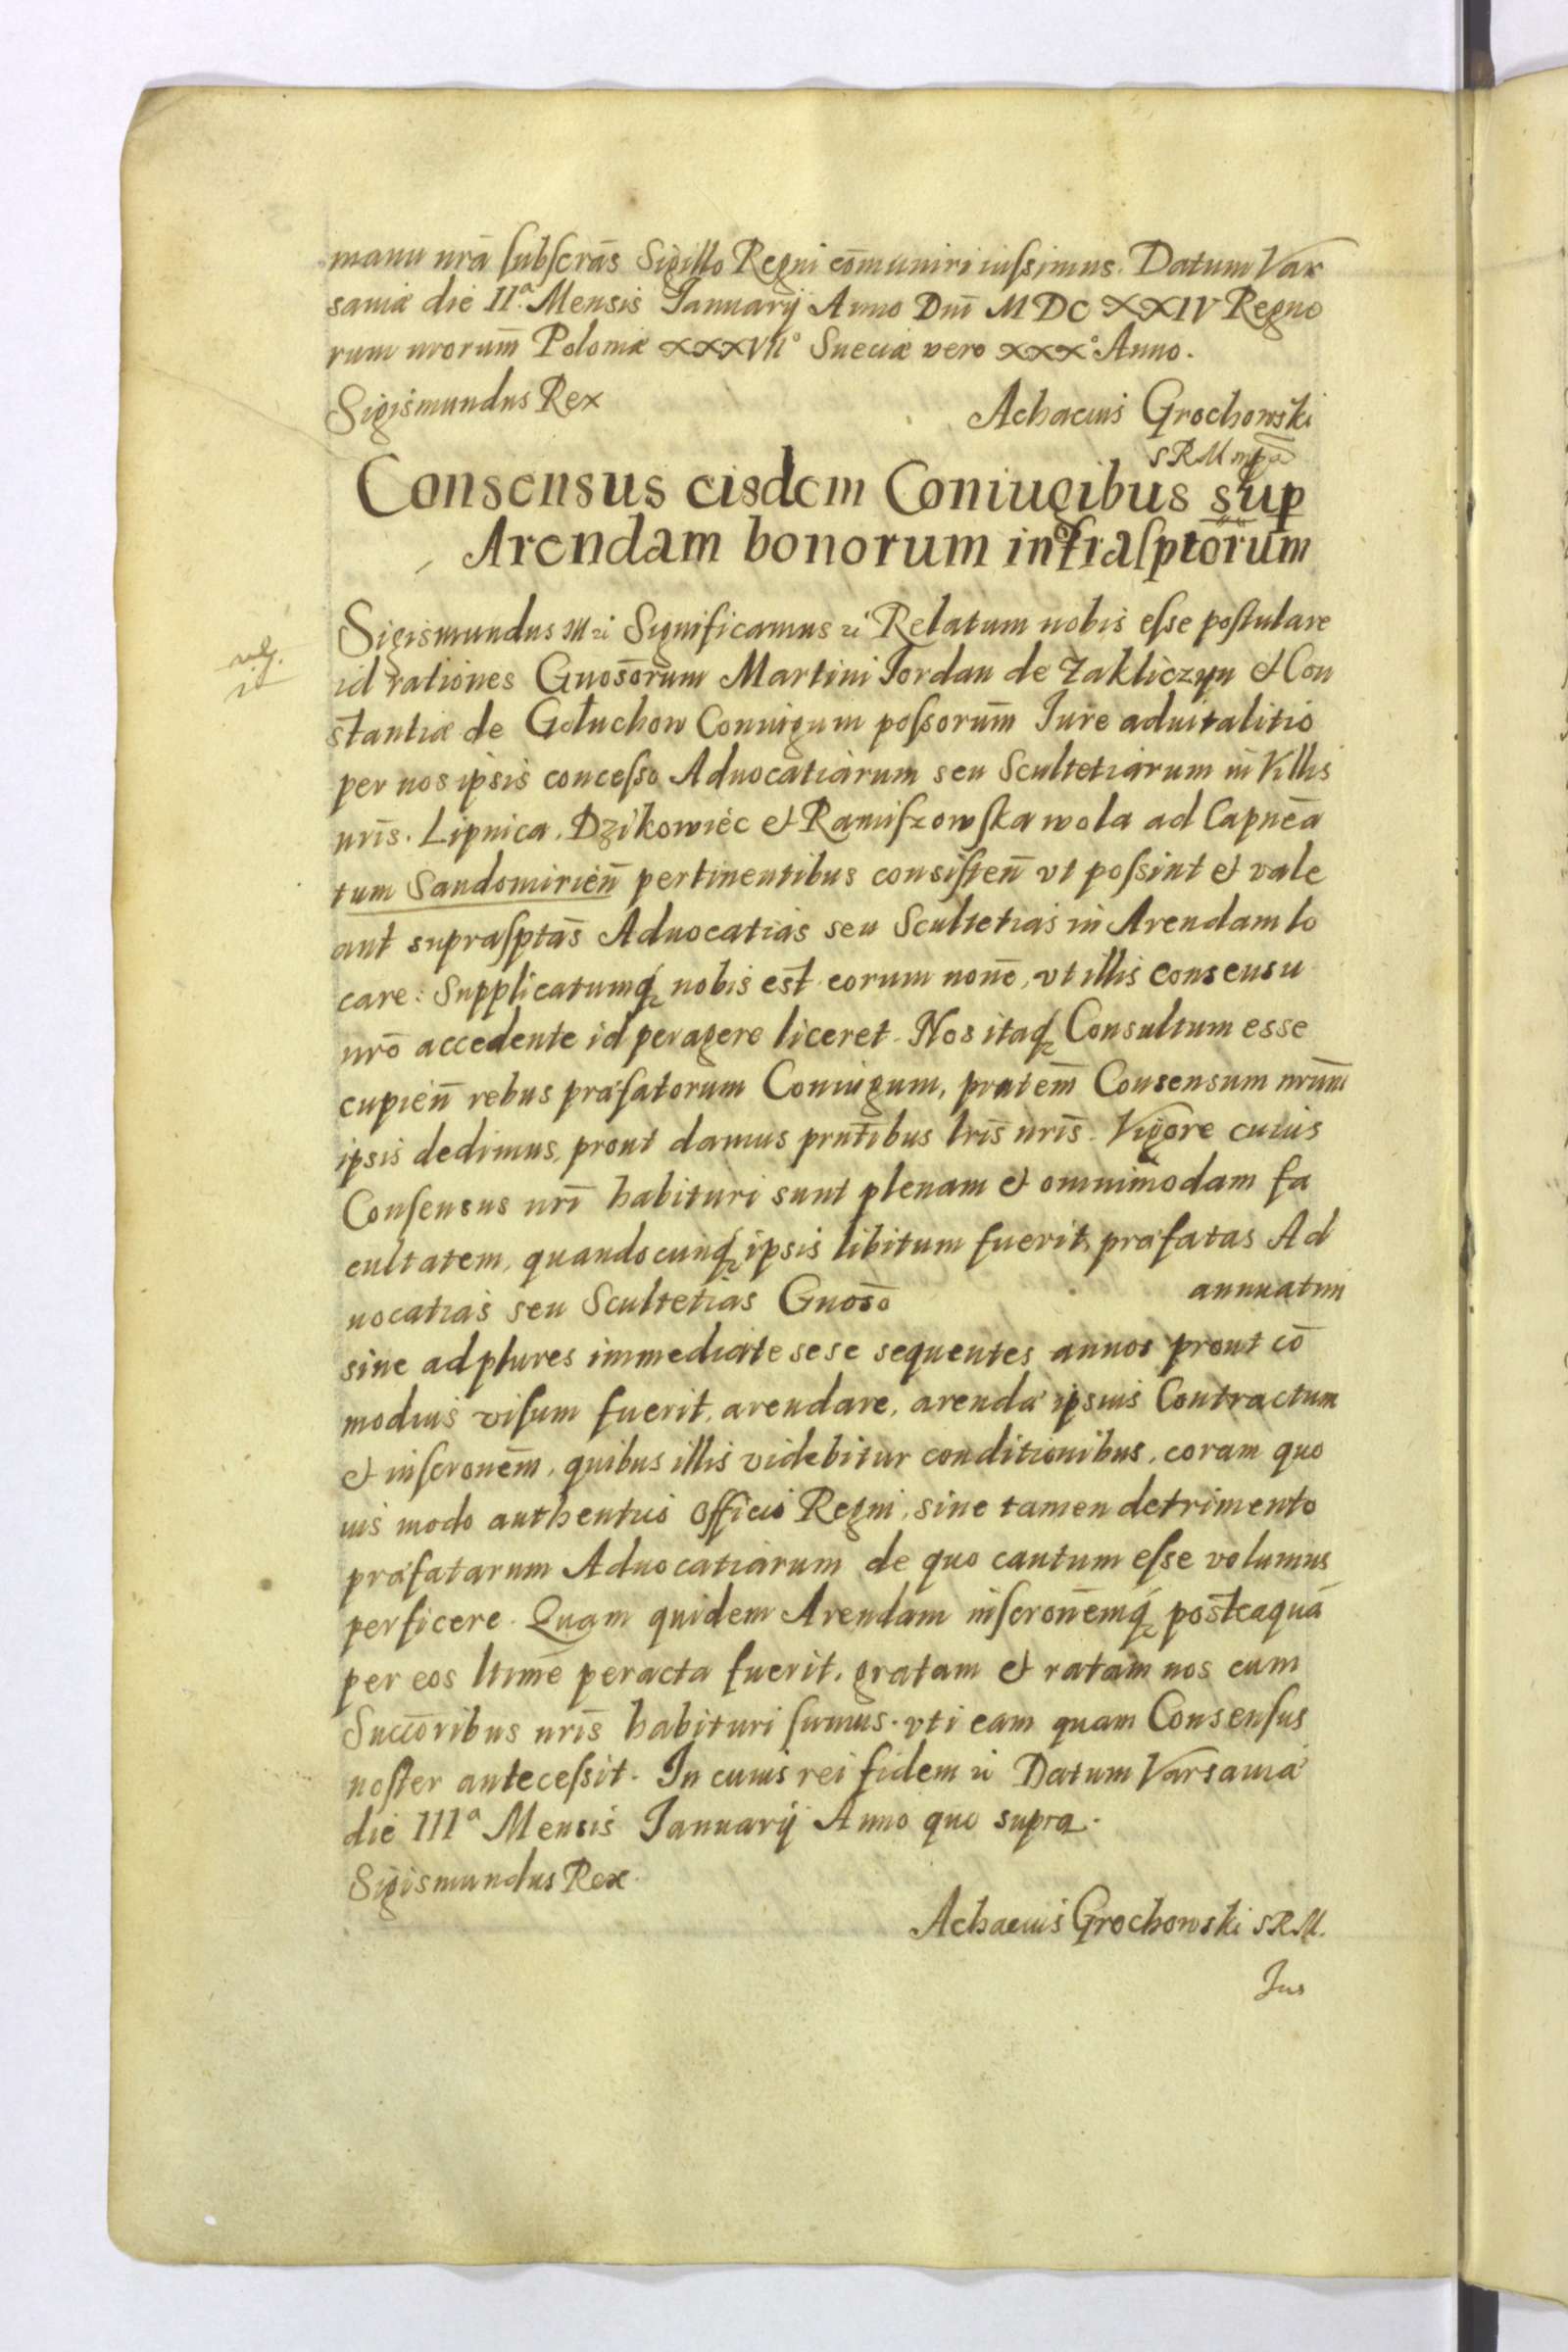 manu nr̃a ſubſcrãs Sigillo Regni cõmuniri iuſsimus. Datum Var
sauiæ die IIª Mensis Ianuarij Anno Dnĩ MDCXXIV Regno
rum nrorum̃ Poloniæ XXXVIIº Sueciæ vero XXXº Anno.
Sigismundus Rex
Achacius Grochowski
SRM mpa
Consensus eisdem Coniugibus sup
Arendam bonorum infraſptorum
Sigismundus Significamus Relatum nobis eſse poſtulare
id rationes Gnosõrum Martini Iordan de Zakliczyn et Con
stantiæ de Gołuchow Coniugum poſsorum̃ Iure aduitalitio
per nos ipsis conceſso Aduocatiarum seu Scultetiarum in Villis
nris̃. Lipnica, Dzikowiec et Raniſzowſka wola ad Capnẽa
tum Sandomirien̄ pertinentibus consiſten̄ vt poſsint et vale
ant supraſptãs Aduocatias seu Scultetias in Arendam lo
care: Supplicatumq́ nobis est eorum nom̃e, vt illis consensu
nrõ accedente id peragere liceret. Nos itaq́ Consultum esse
cupien̄ rebus præfatorum Coniugum, pratem̃ Consensum nrum̃
ipsis dedimus, prout damus prntĩbus lris̃ nris̃. Vigore cuius
Conſensus nrĩ habituri sunt plenam et omnimodam fa
cultatem, quandocunq́ ipsis libitum fuerit, præfatas Ad
uocatias seu Scultetias Gnosõ annuatim
siue ad plures immediate sese sequentes annos prout cõ
modius viſum fuerit, arendare, arendæ ipsius Contractum
et inſcronẽm, quibus illis videbitur conditionibus, coram quo
uis modo authentico officio Regni, sine tamen detrimento
præfatarum Aduocatiarum de quo cautum eſse volumus
perficere. Quam quidem Arendam inſcronẽmq́ posteaquã
per eos ltimẽ peracta fuerit, gratam et ratam nos cum
Succõribus nris̃ habituri ſumus. vti eam quam Consenſus
noſter anteceſsit. In cuius rei fidem Datum Varsauiæ
die IIIª Mensis Ianuarij Anno quo supra.
Sigismundus Rex.
Achacius Grochowski SRM.
Ius